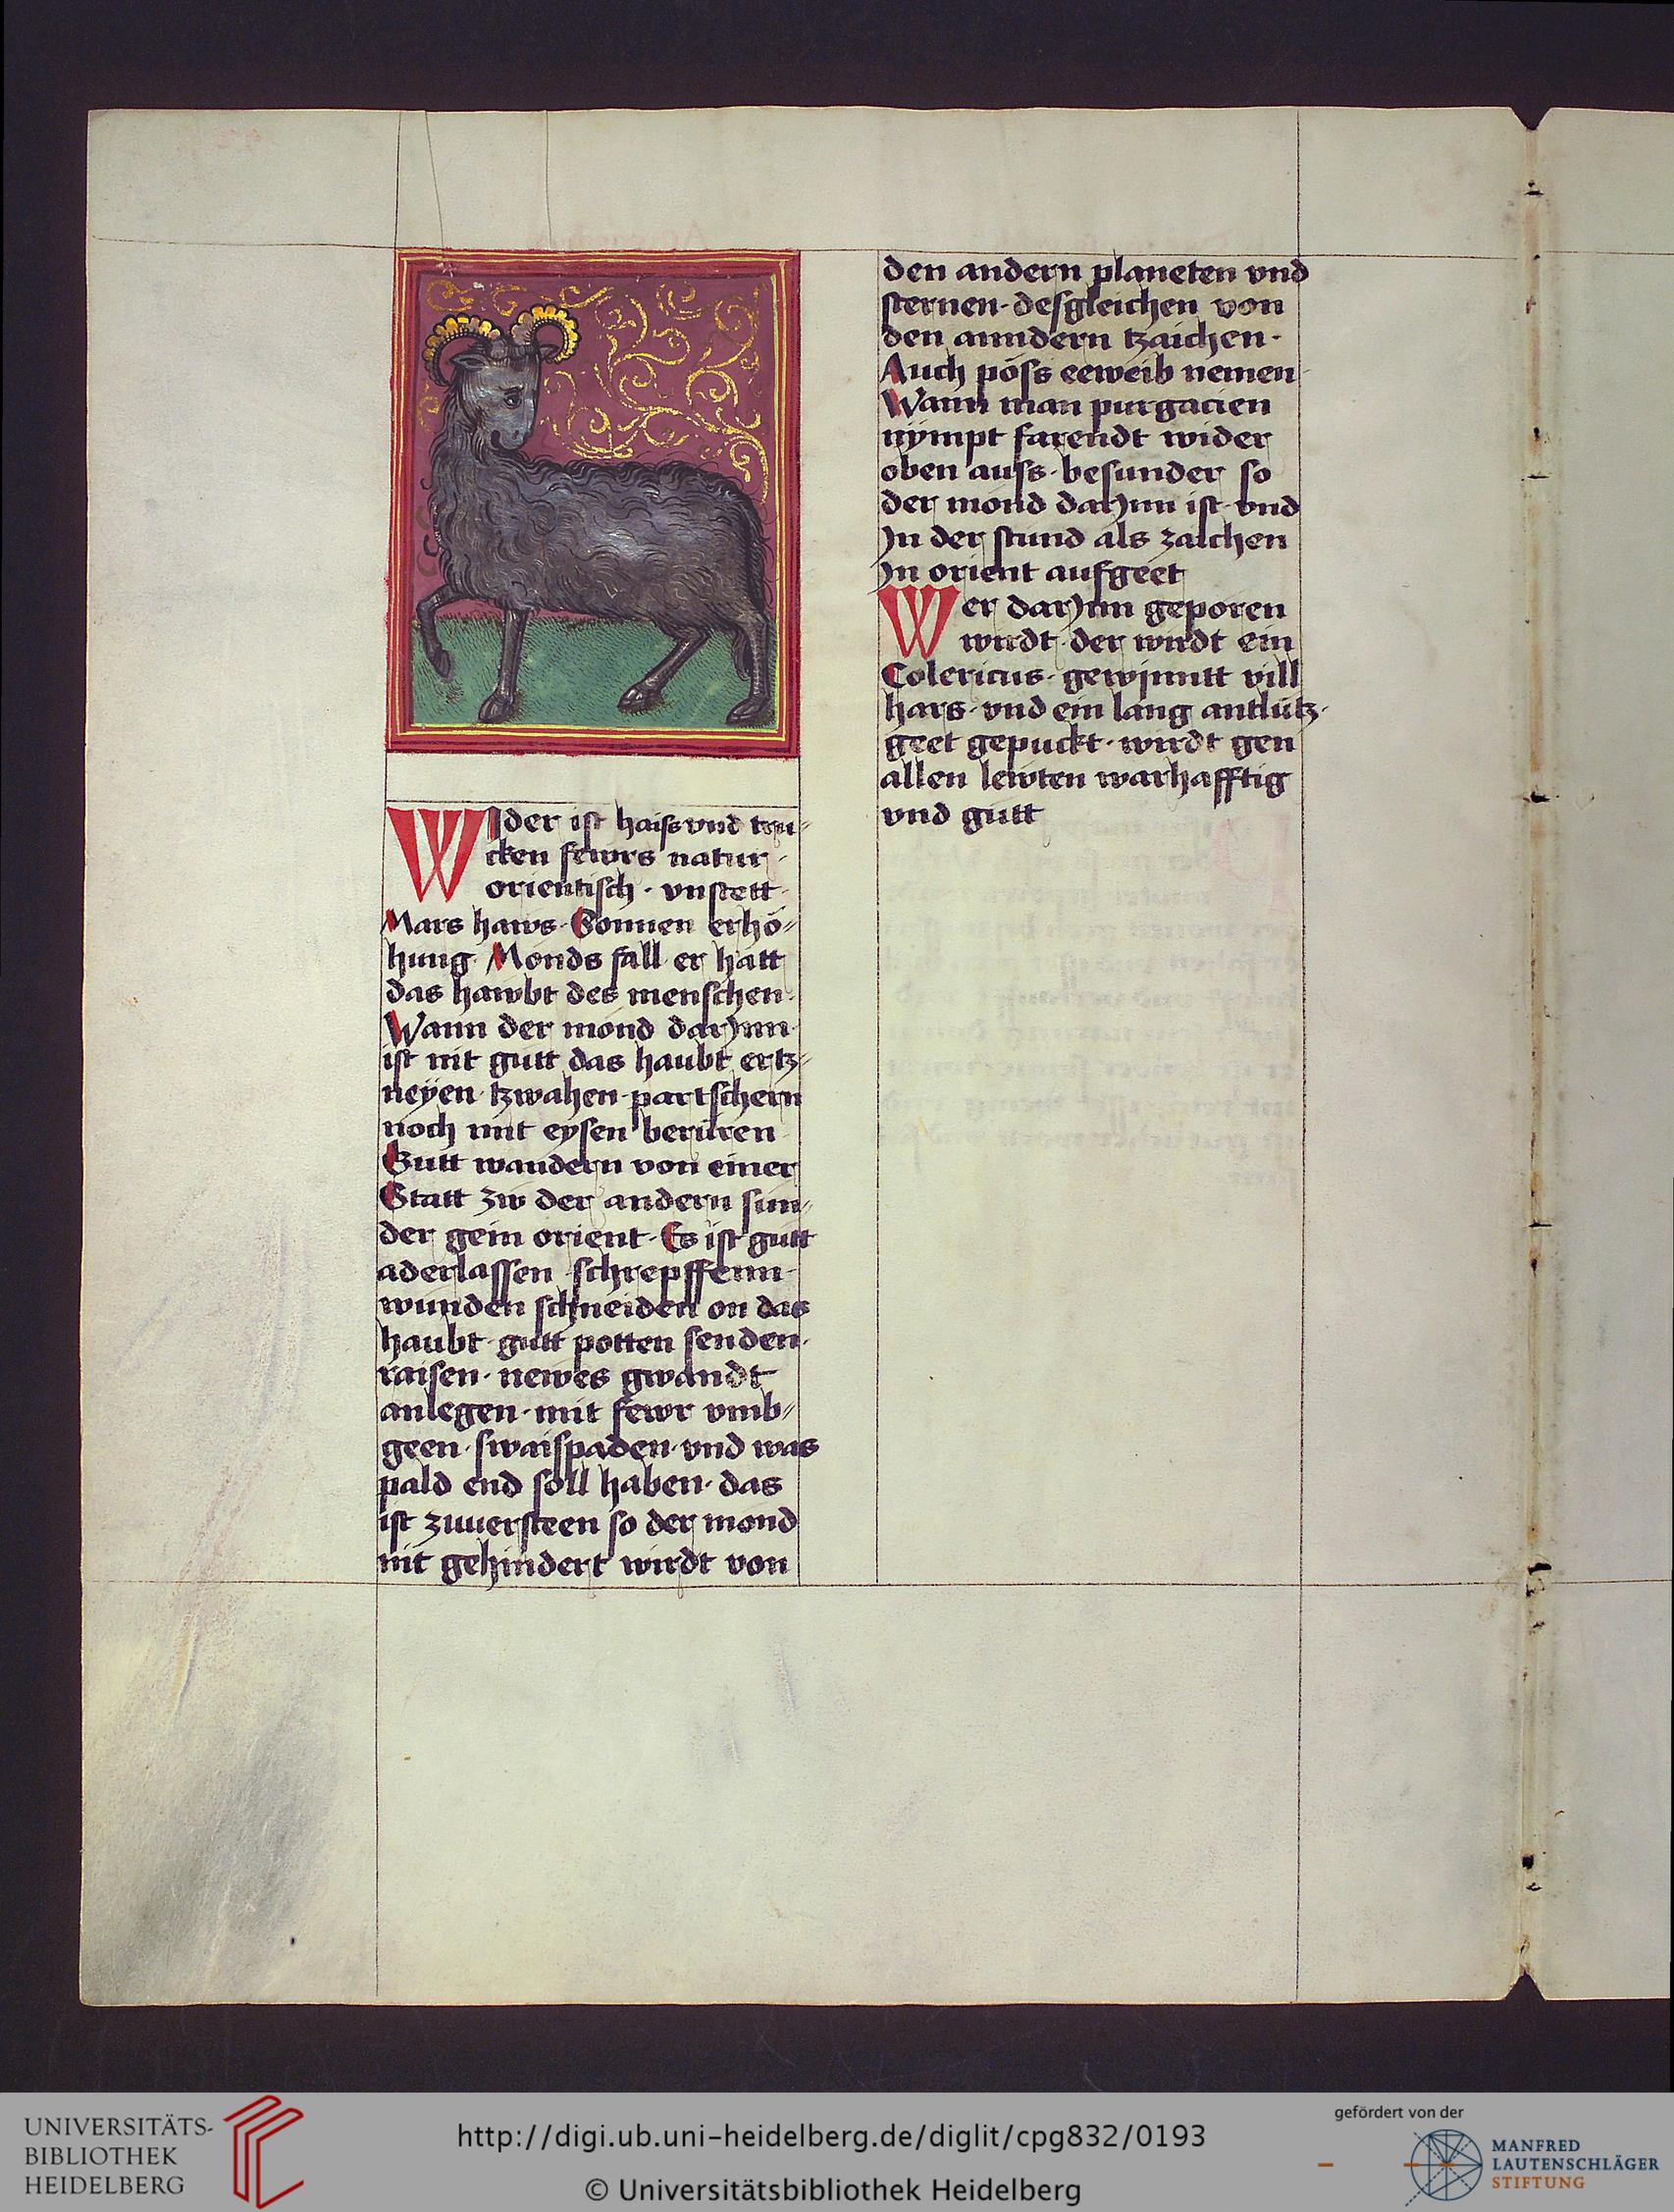 Wider ist haiss vnd tru-
cken fewrs natur ·
orientisch · vnstett ·
Mars haws · Sonnen erhö-
hung · Monds fall · er hatt
das hawbt des menschen ·
Wann der mond darjnn
ist nit gutt das haubt ertz-
neÿen · tzwahen · partschern
noch mit eysen berüren
Gutt wandern von einer
Statt zw der andern sun-
der gein orient · Es ist gutt
aderlassen · schrepffenn ·
wunden schneiden on das
haubt · gutt potten senden ·
raisen · newes gwandt
anlegen · mit fewr vmb-
geen · swaispaden · vnd was
pald end soll haben · das
ist zuuersteen so der mond
nit gehindert wirdt von
den andern planeten vnd
sternen · desgleichen von
den anndern tzaichen ·
Auch pöss eeweib nemen ·
Wann man purgacien
nÿmpt farendt wider
oben auss · besunder so
der mond darjnn ist · vnd
Jn der stund als zaichen
Jn orient aufgeet
Wer darjnn geporen
wirdt · der wirdt ein
Colericus · gewjnntt vill
hars · vnd ein lang antlütz ·
geet gepuckt · wirdt gen
allen lewten warhafftig
vnd gutt
UNIVERSITÄTS-
BIBLIOTHEK
HEIDELBERG
http://digi.ub.uni-heidelberg.de/diglit/cpg832/0193
© Universitätsbibliothek Heidelberg
gefördert von der
MANFRED
LAUTENSCHLÄGER
STIFTUNG